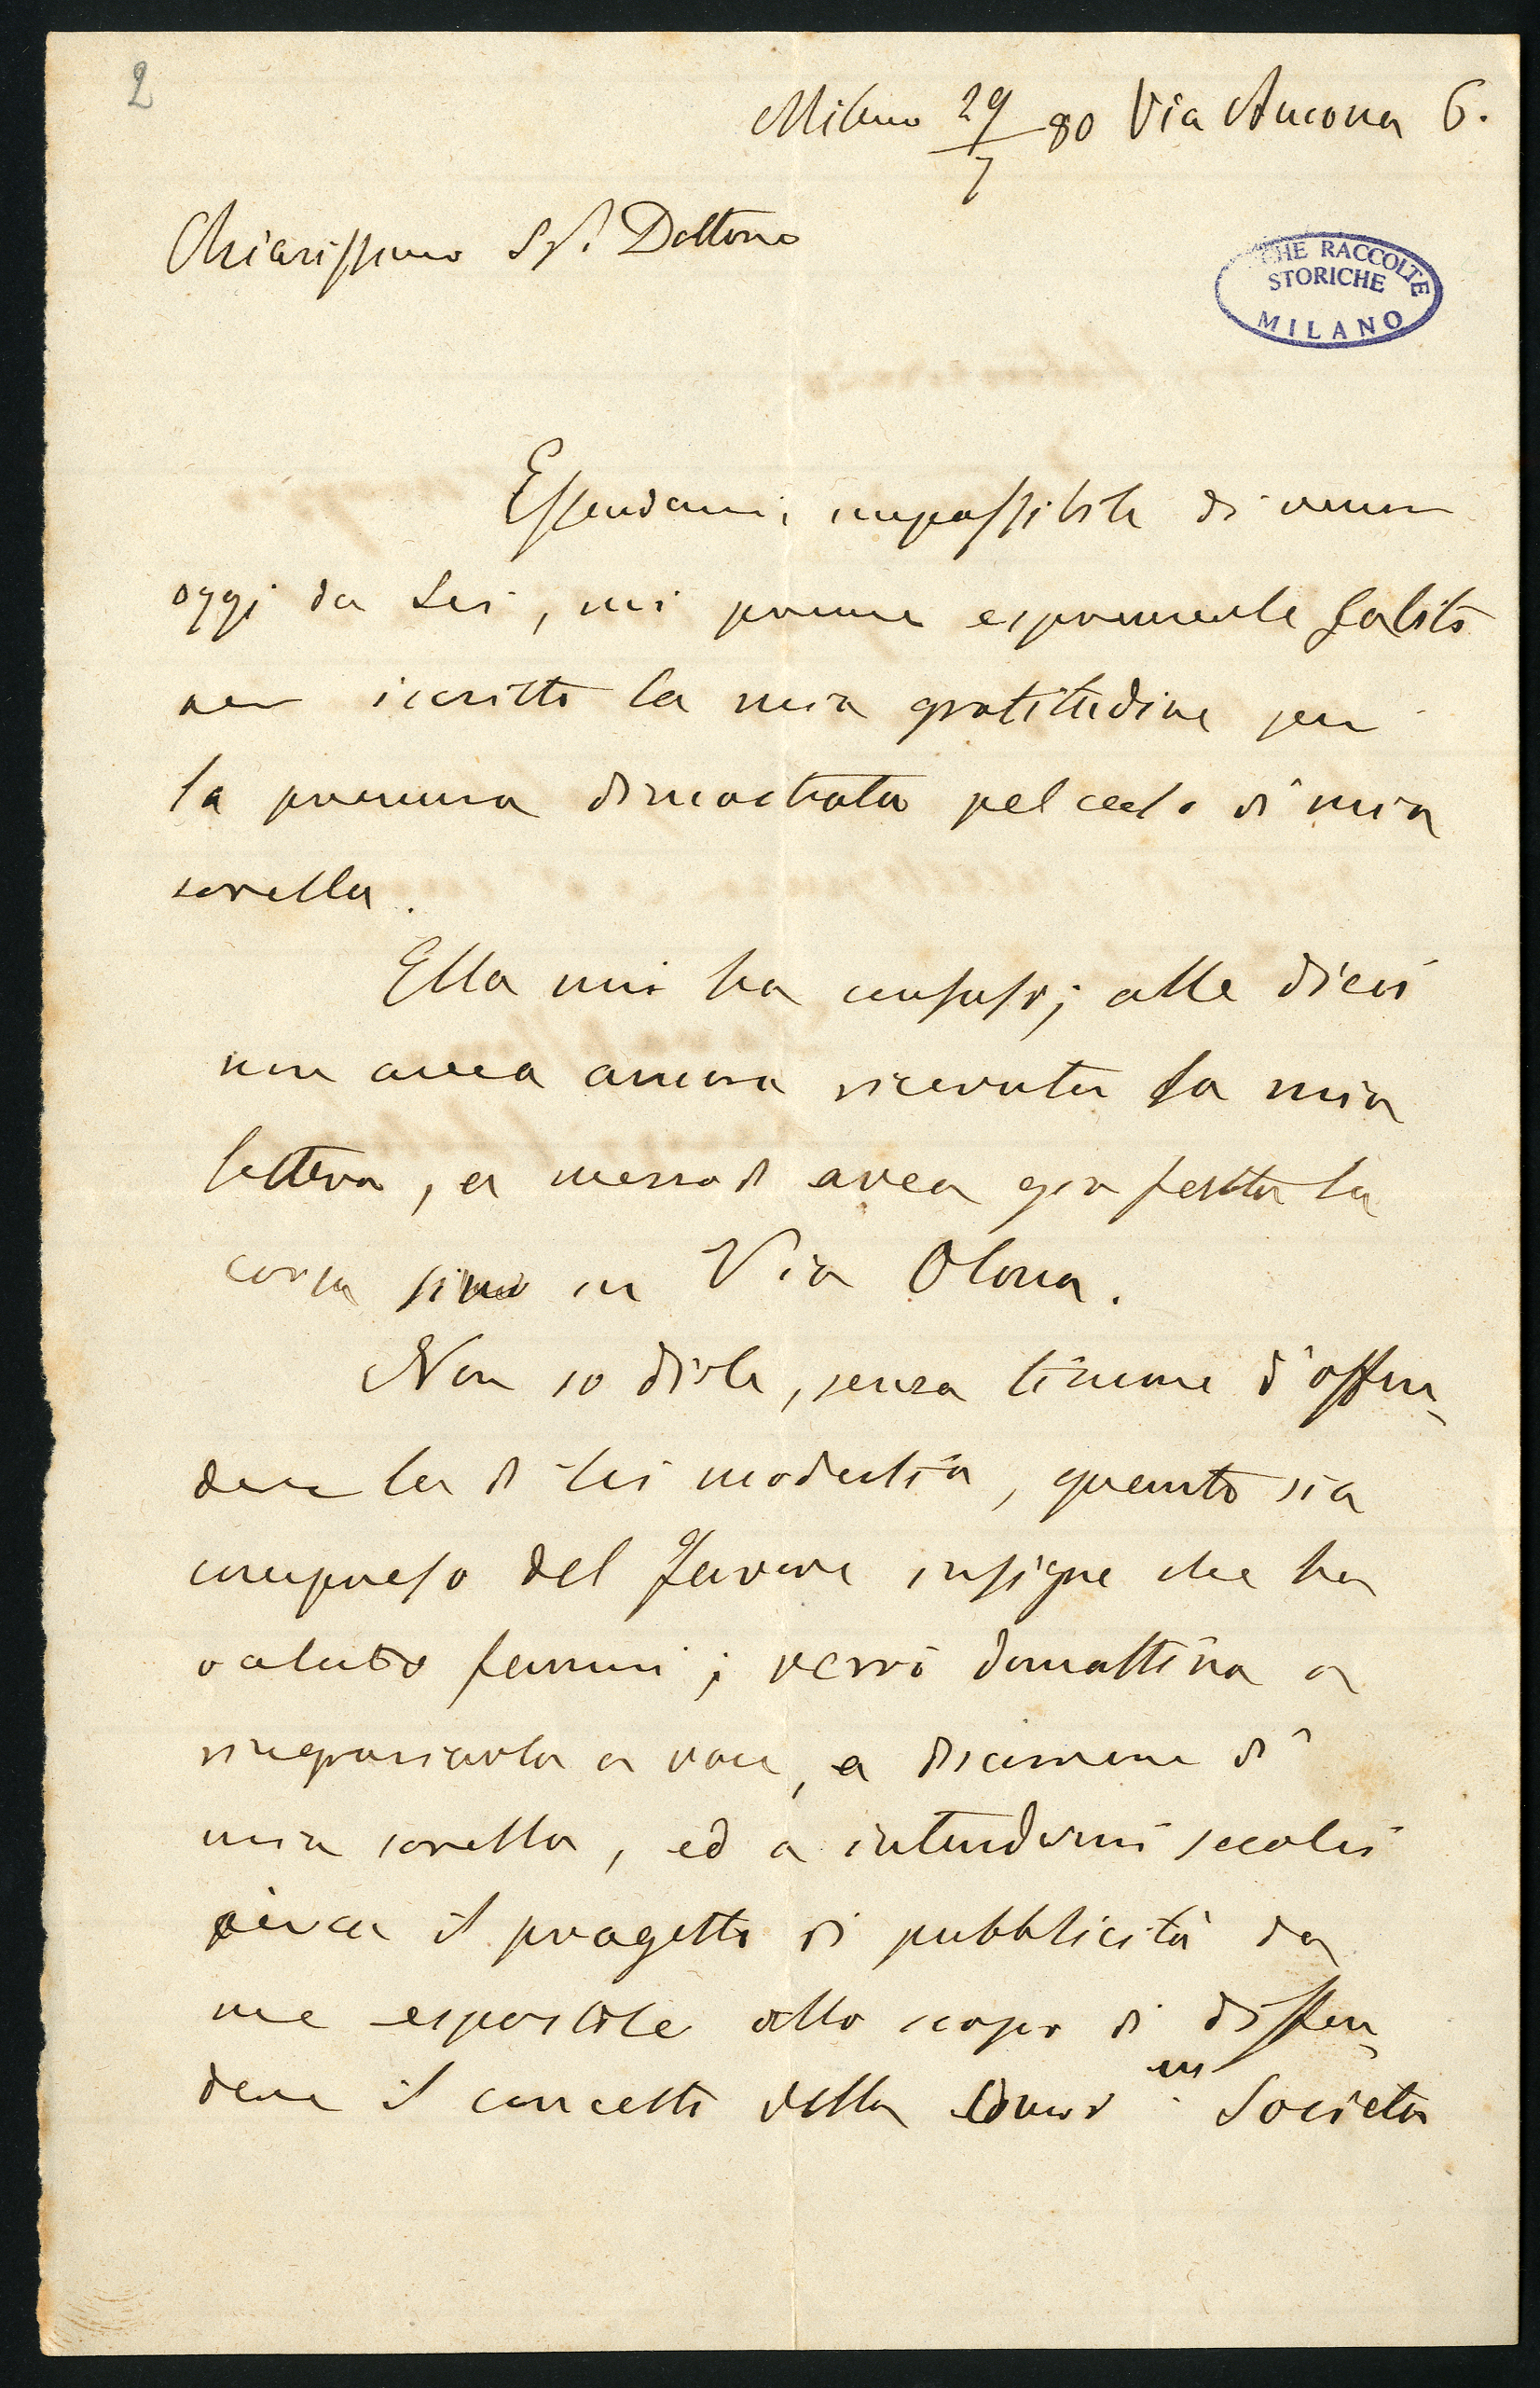 2
Milano 29/7 80 Via Ancona 6.
Chiarissimo Sr. Dottore
CHE RACCOLTE
STORICHE
MILANO
Essendomi impossibile di venire
oggi da Lei, mi preme esprimerle subito
per iscritto la mia gratitudine per
la premura dimostrata pel ceto di mia
sorella.
Ella mi ha confuso; alle dieci
non avea ancora ricevuta la mia
lettera, a mezzodì avea già fatta la
corsa sino in Via Olona.
Non so dirle, senza timore d'offen-
dere la di lei modestia, quanto sia
compreso del favore insigne che ha
voluto farmi; verrò domattina a
ringraziarla a voce, a discorrere di
mia sorella, ed a intendermi secolei
circa il progetto di pubblicità da
me espostole allo scopo di diffon-
dere il concetto della Società